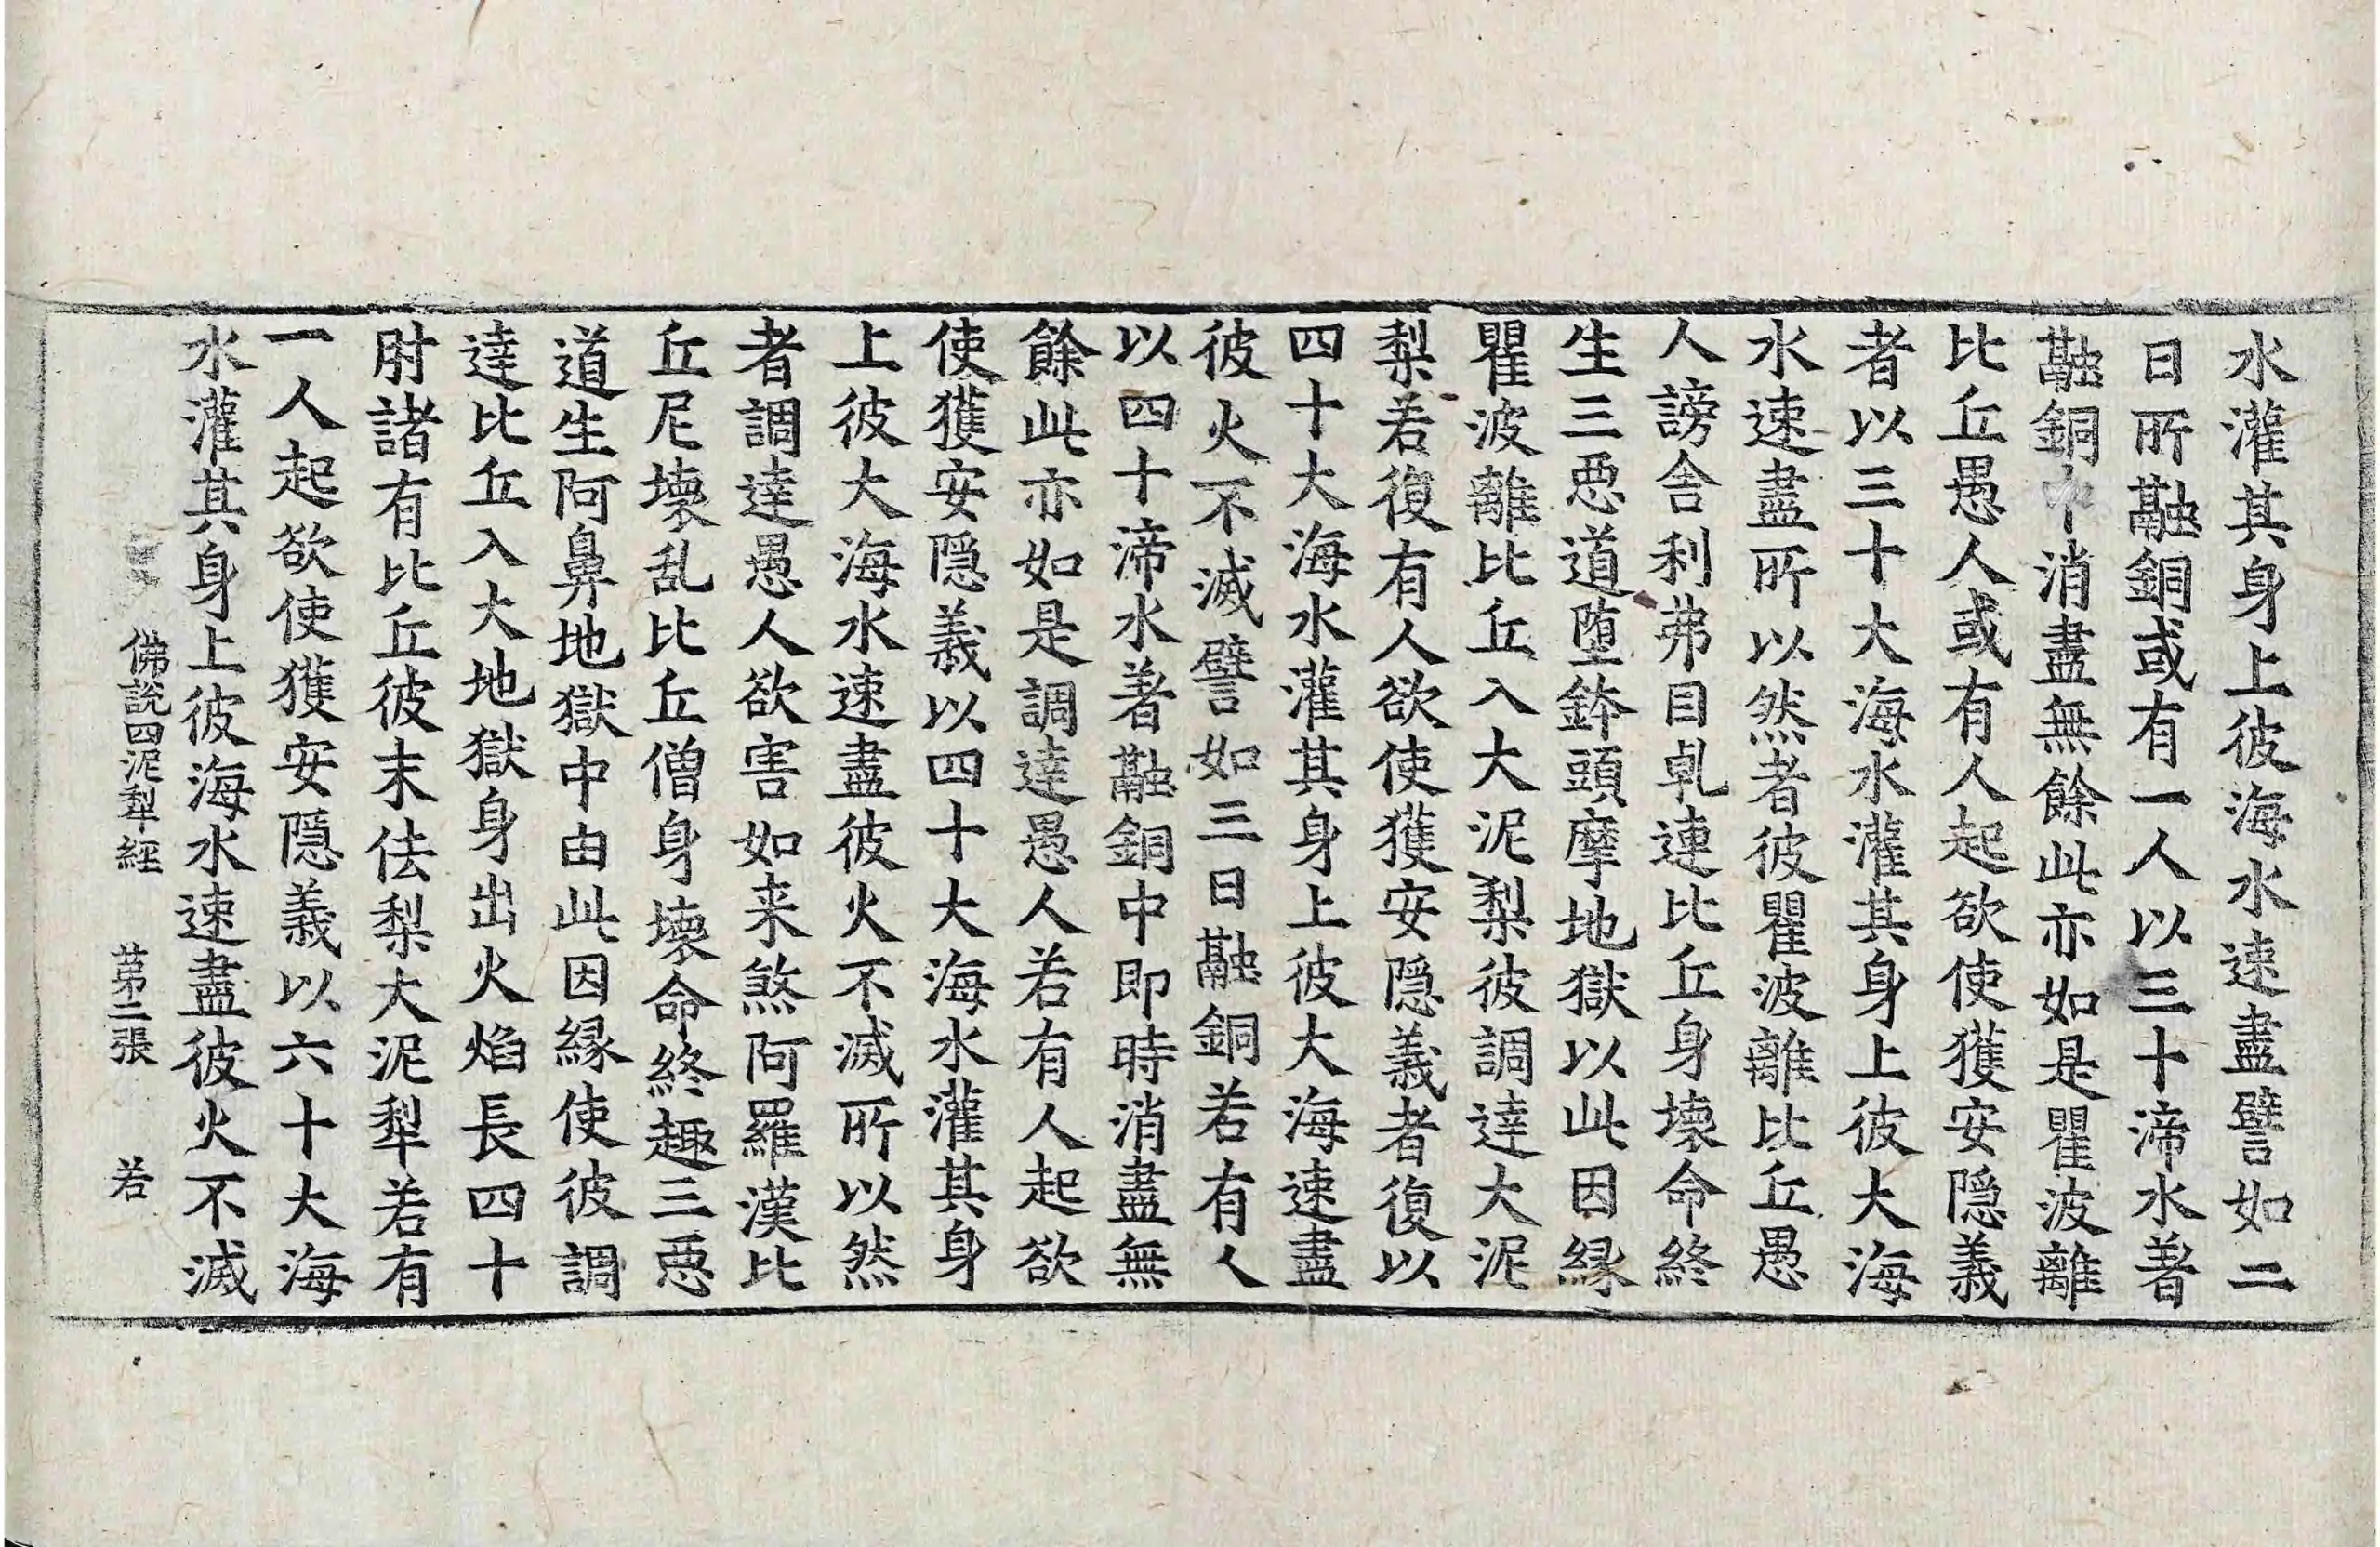 水灌其身上彼海水速盡譬如二
日所融銅或有一人以三十渧水著
融銅中消盡無餘此亦如是瞿波離
比丘愚人或有人起欲使獲安隠義
者以三十大海水灌其身上彼大海
水速盡所以然者彼瞿波離比丘愚
人謗舎利弗目乹連比丘身壞命終
生三惡道堕鉢頭摩地獄以此因縁
瞿波離比丘入大泥梨彼調達大泥
梨若復有人欲使獲安隠義者復以
四十大海水灌其身上彼大海速盡
彼火不滅譬如三日融銅若有人
以四十渧水著融銅中即時消盡無
餘此亦如是調達愚人若有人起欲
使獲安隠義以四十大海水灌其身
上彼大海水速盡彼火不滅所以然
者調達愚人欲害如来煞阿羅漢比
丘尼壞乱比丘僧身壞命終趣三惡
道生阿鼻地獄中由此因縁使彼調
達比丘入大地獄身出火焰長四十
肘諸有比丘彼末佉梨大泥犁若有
一人起欲使獲安隠義以六十大海
水灌其身上彼海水速盡彼火不滅
佛說四泥犁經 苐二張 若